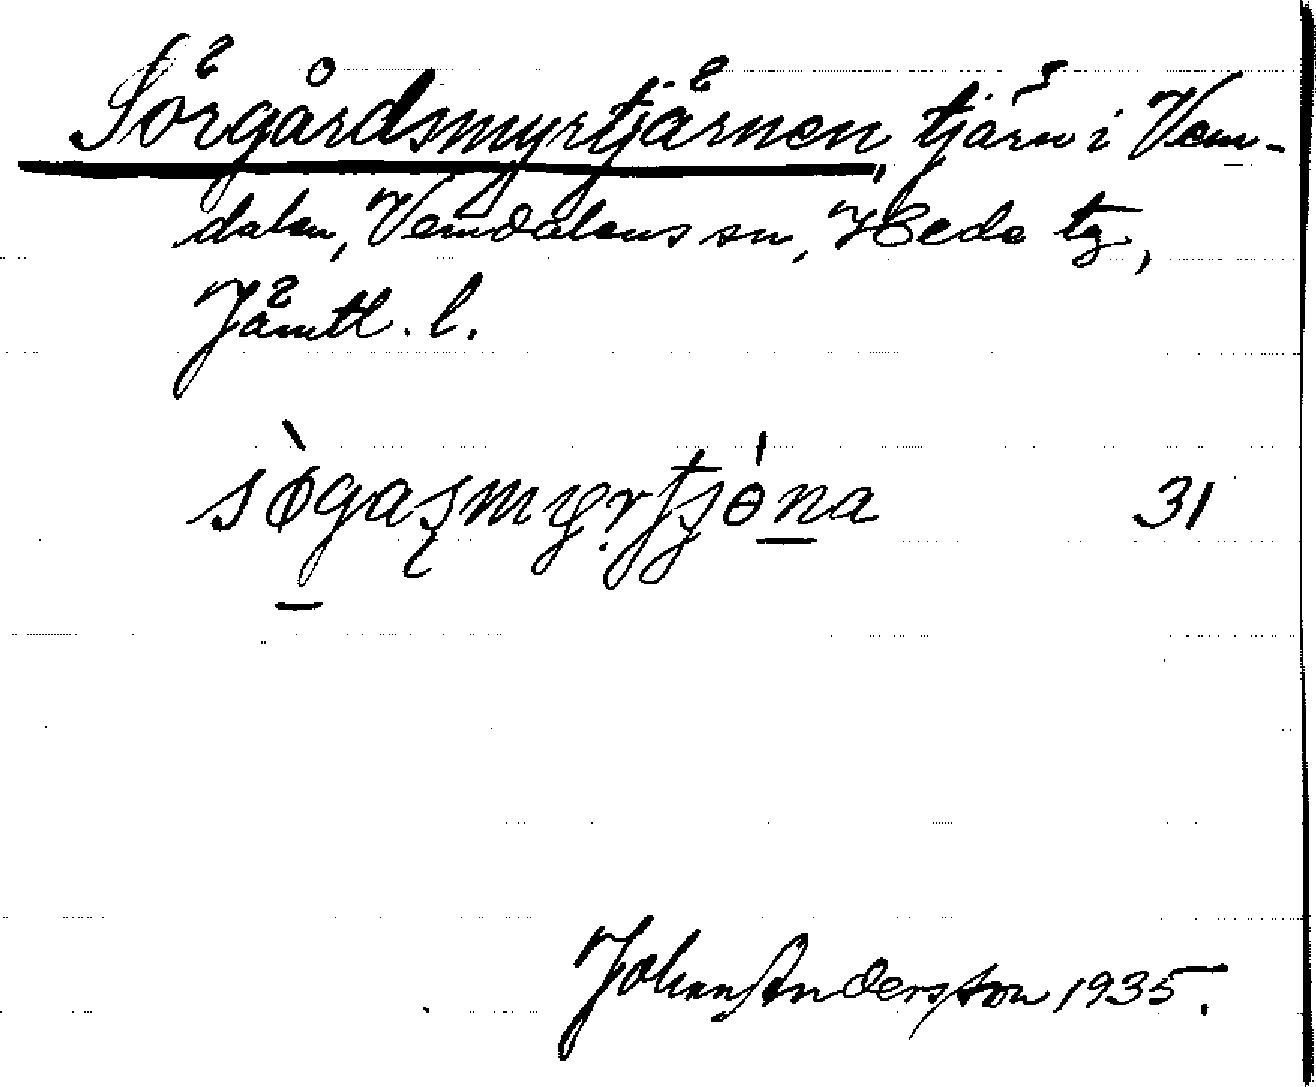 Sörgårdsmyrtjärnen, tjärn i Vem-
dalen, Vemdalens sn, Hede tg,
Jämtl. l.
sø̀gaʂmyrtjɵ́na 31
Johan Andersson 1935.